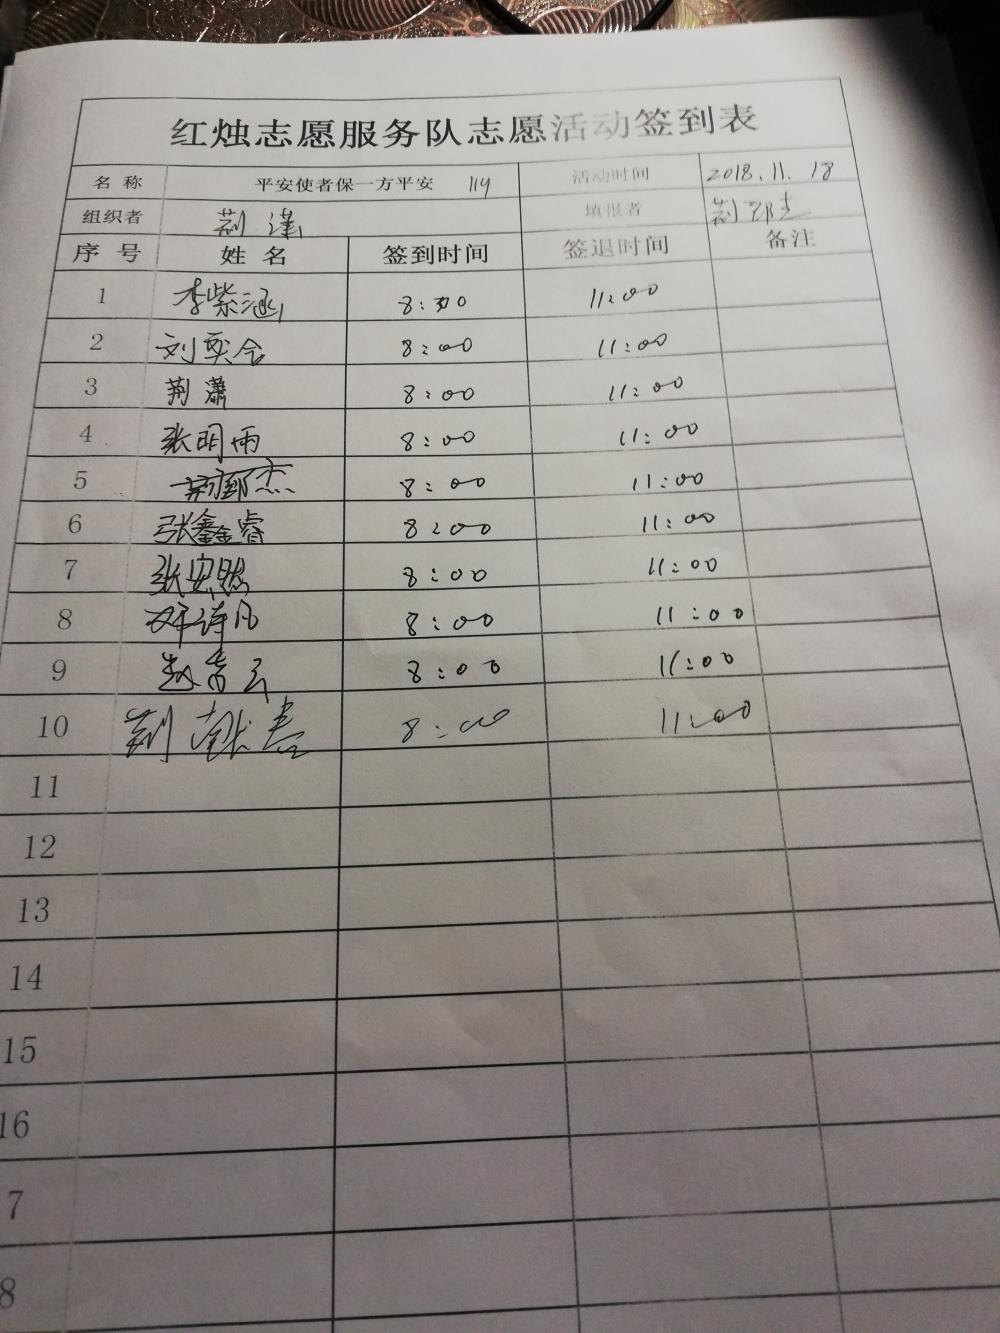 红烛志愿服务队志愿活动签到表
名 称 平安使者保一方平安 119 活动时间 2018.11.18
组织者 荆 瑾 填报者 荆
序 号 姓 名 签到时间 签退时间 备注
1 李紫涵 8:00 11:00
2 刘奕含 8:00 11:00
3 荆潇 8:00 11:00
4 张明雨 8:00 11:00
5 荆郁杰 8:00 11:00
6 张鑫睿 8:00 11:00
7 张安然 8:00 11:00
8 邓诗凡 8:00 11:00
9 赵 云 8:00 11:00
10 荆 8:00 11:00
11
12
13
14
15
16
7
8